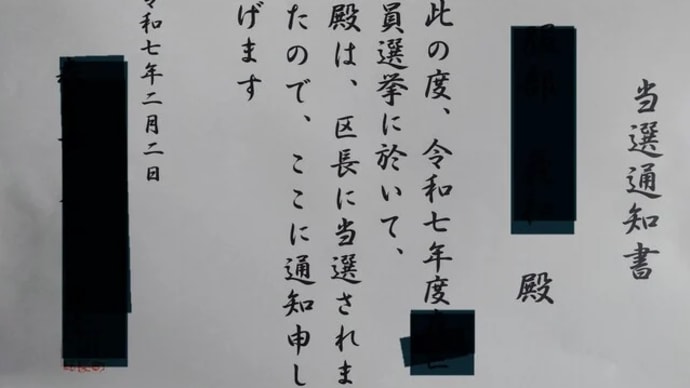 当選通知書
殿
此の度、令和七年度
員選挙に於いて、
殿は、区長に当選されま
たので、ここに通知申し
げます
令和七年二月二日